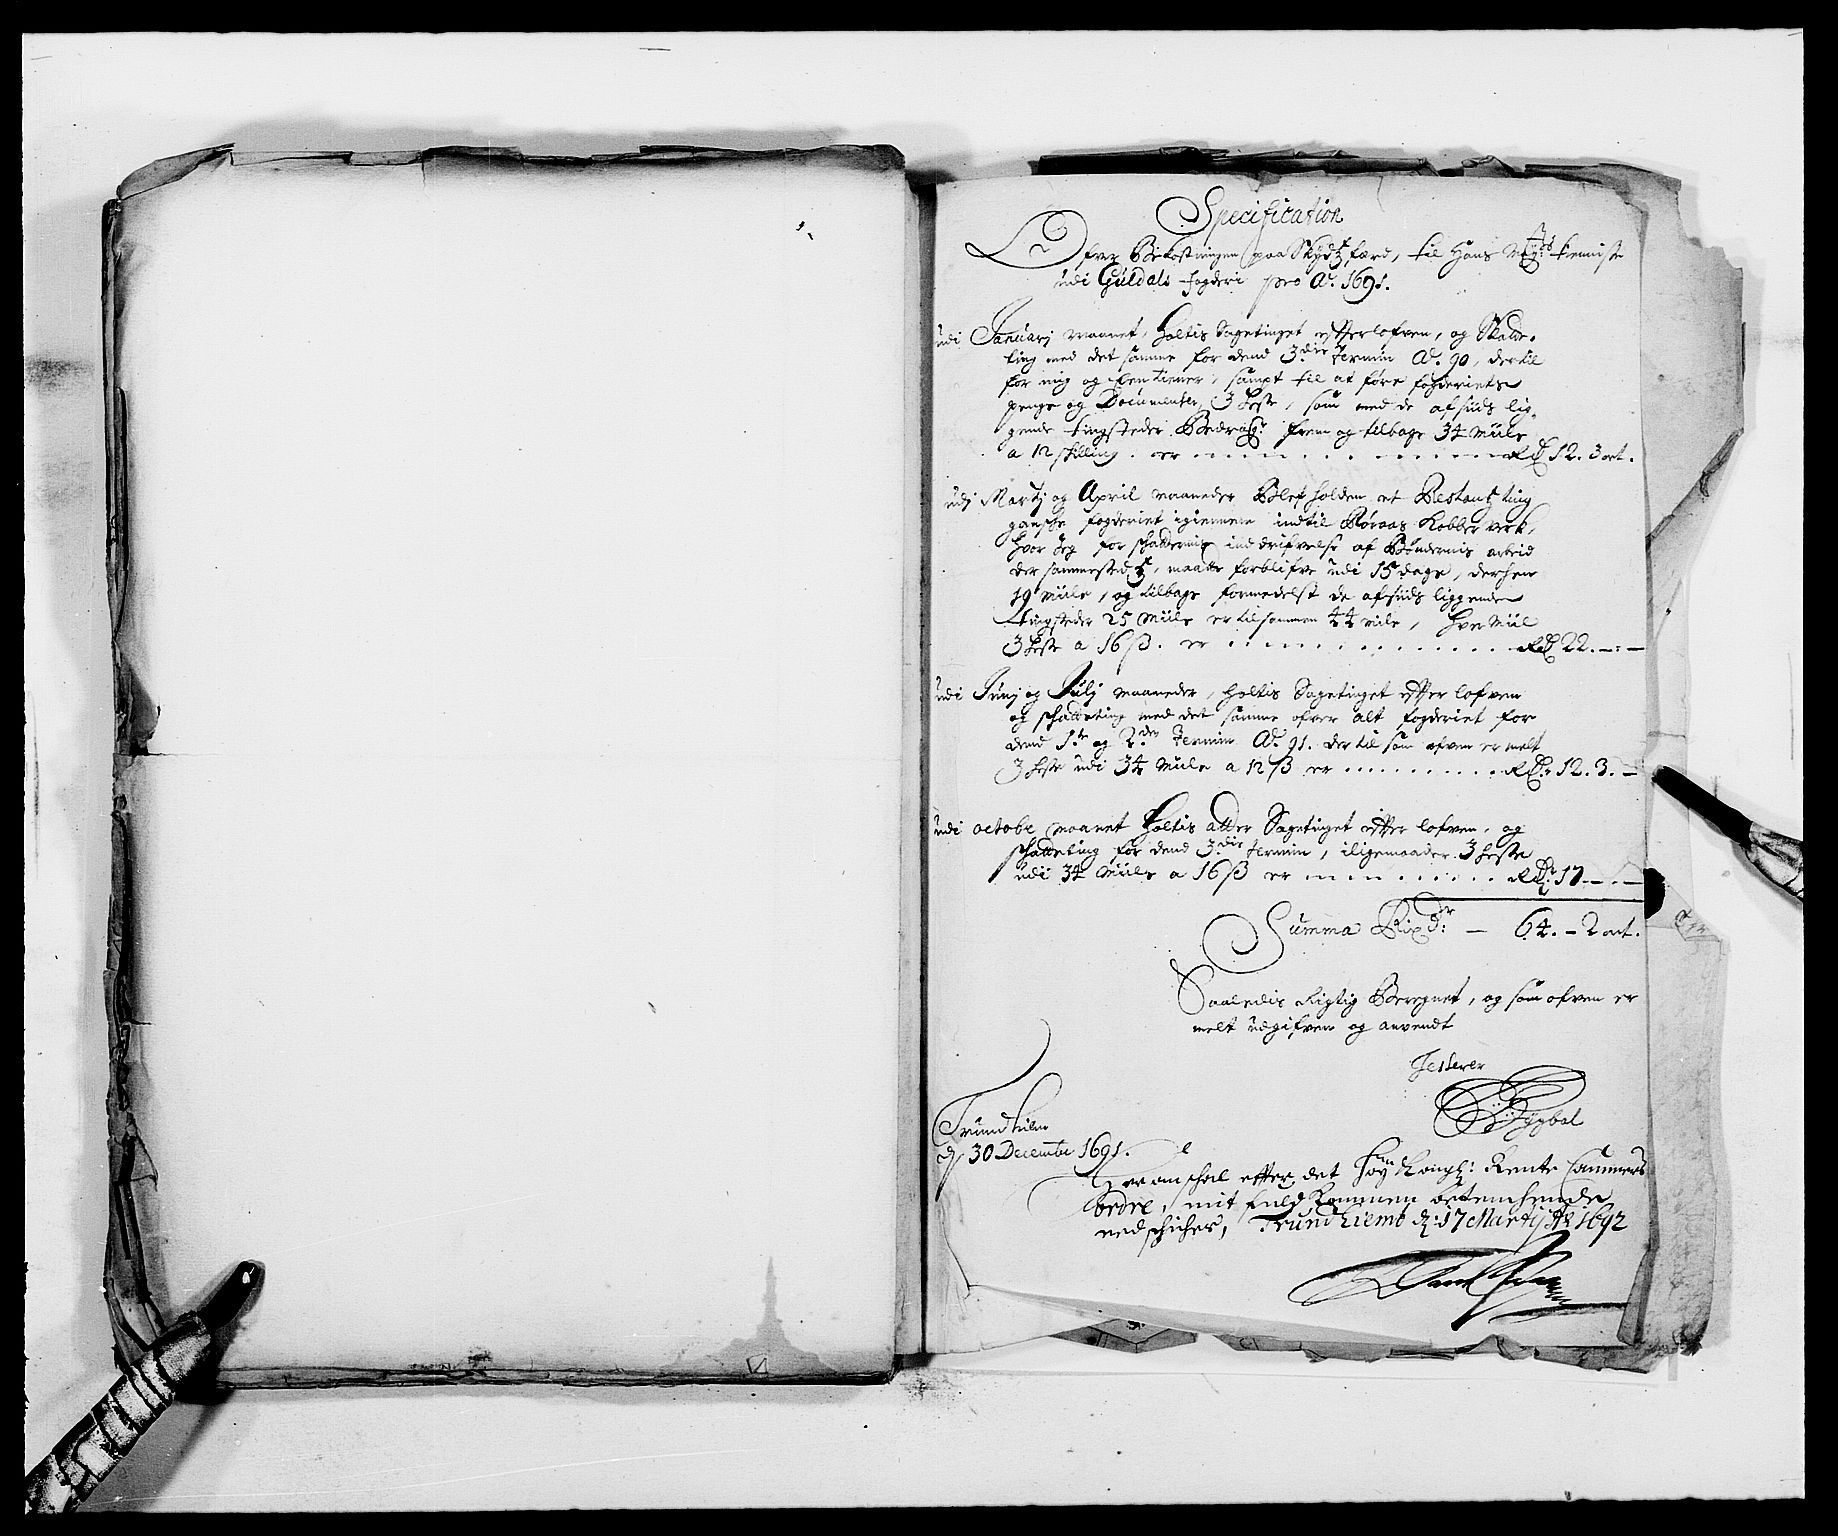 Specification
Ofver Bekostningen paa Skydtzferd, til Hans May:ts tienniste
udi Guldals fogderi pro Ao. 1691.
udi Januarj maanet, holtis Sagetinget effter lofven, og Skatte-
ting med det samme for dend 3.die Termin Ao. 90, dertil
for mig og een tiener, sampt til at føre fogderiets
penge og Documenter, 3 heste, som med de afsiids lig-
gende tingsteder Bedrager frem og tilbage 34 Miile
a 12 skilling er Rd 12. 3 ort.
udj Martj og April maaneder Blef holden et Restantz ting
gansche fogderiet igiennem indtil Røraas Kobberverk,
hvor Jeg for schatternis inddrifvelse af Bøndernis arbeid
der sammestedtz, maatte forblifve udi 15 dage, derhen
19 Miile, og tilbage formedelst de afsiids liggende
tingsteder 25 Miile er tilsammen 44 mile, hver Miil
3 heste a 16 ß. er Rd 22. - : -
udi Junj og Julj maaneder, holtis Sagetinget effter lofven
og schatteting med det samme ofver alt fogderiet for
dend 1.te og 2.den Termin Ao. 91. dertil som ofven er melt
3 heste udi 34 Miile a 12 ß er Rd: 12. 3. -
udi octobr maanet holtis atter Sagetinget effter lofven, og
schatteting for dend 3.die Termin, iligemaader 3 heste
udi 34 Miile a 16 ß er Rdr: 17 - . -
Summa Rixdr: - 64. - 2 ort.
Saaledis Rigtig Beregnet, og som ofven er
melt udgifven og anvendt
Testerer
Trundhiem
d 30 Decembr 1691.
Heromschal effter det høy Kongl: Rente Cammers
ordre, mit fuldkommen betenchende
nedschiches, Trundhiemb d: 17 Martij Ao 1692